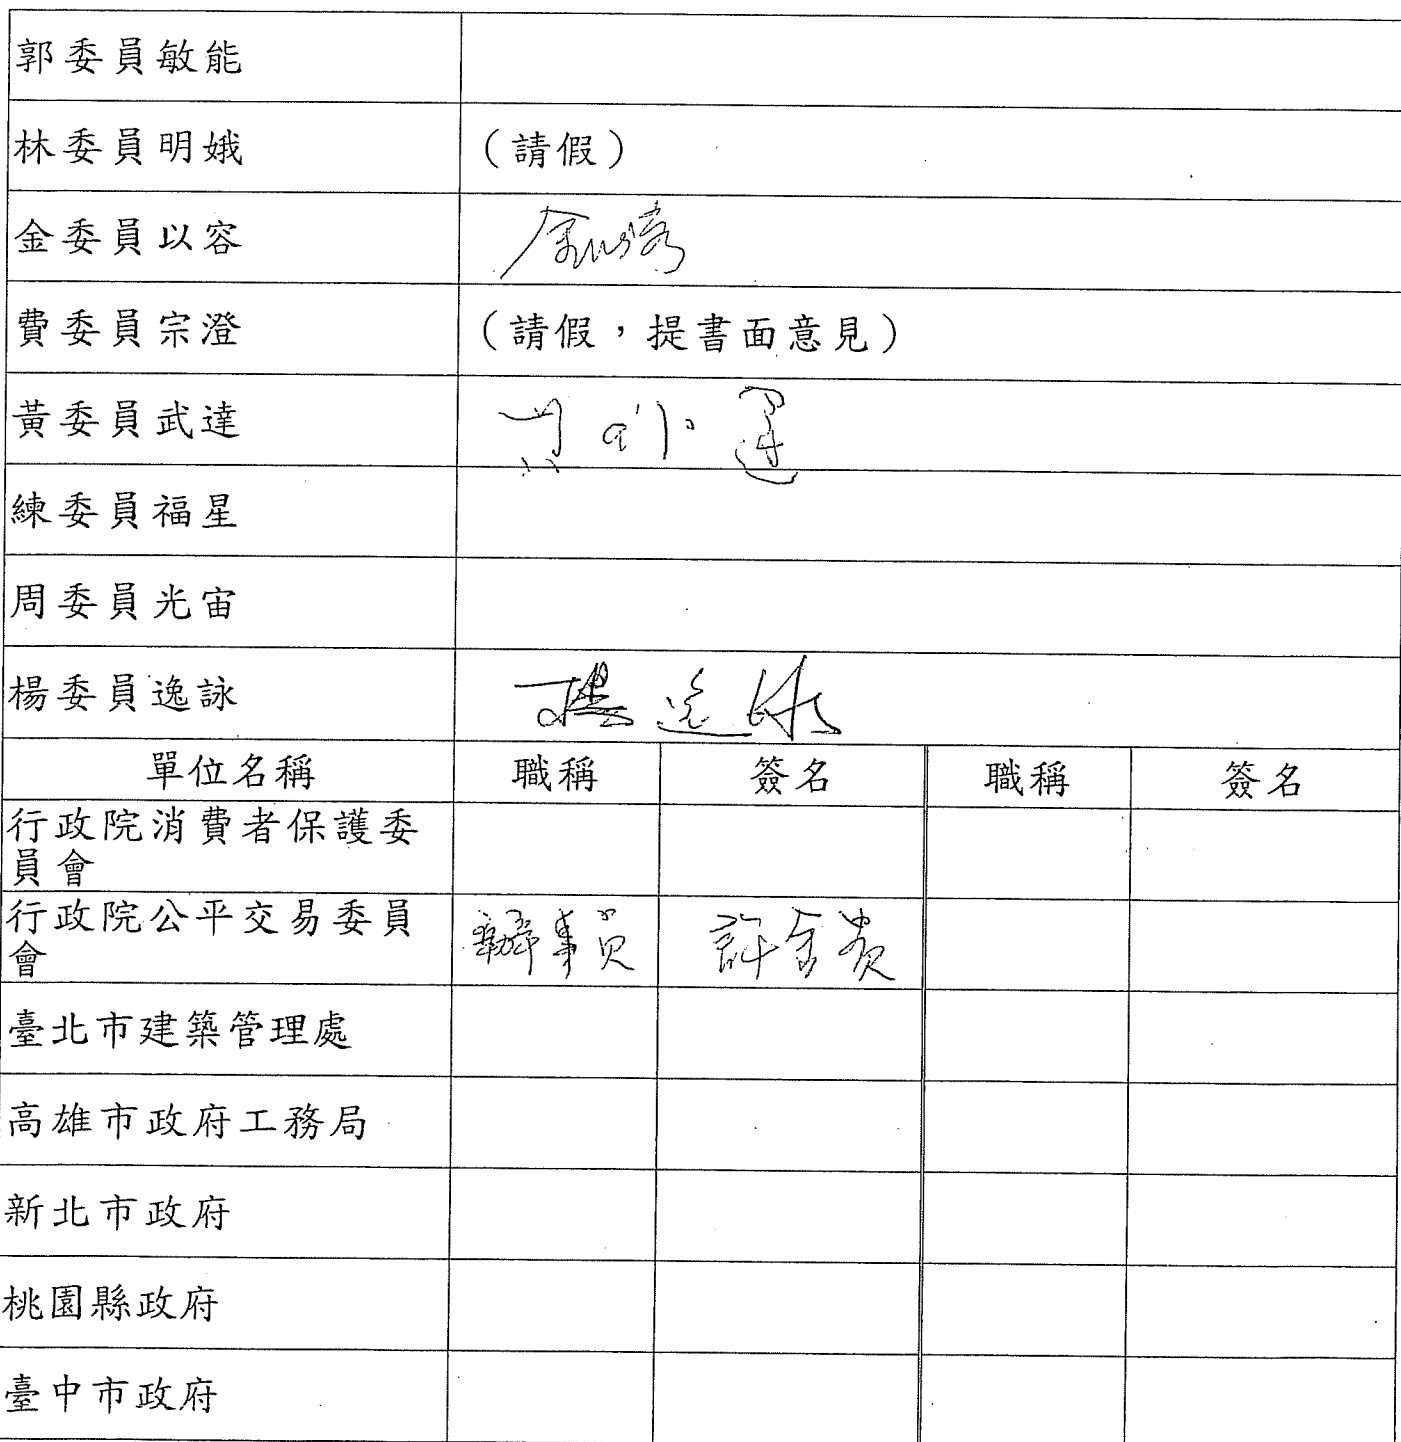 郭委員敏能
林委員明娥 （請假）
金委員以容 金以容
費委員宗澄 （請假，提書面意見）
黃委員武達
練委員福星
周委員光宙
楊委員逸詠 楊逸詠
單位名稱 職稱 簽名 職稱 簽名
行政院消費者保護委
員會
行政院公平交易委員 辦事員 許金貴
會
臺北市建築管理處
高雄市政府工務局
新北市政府
桃園縣政府
臺中市政府